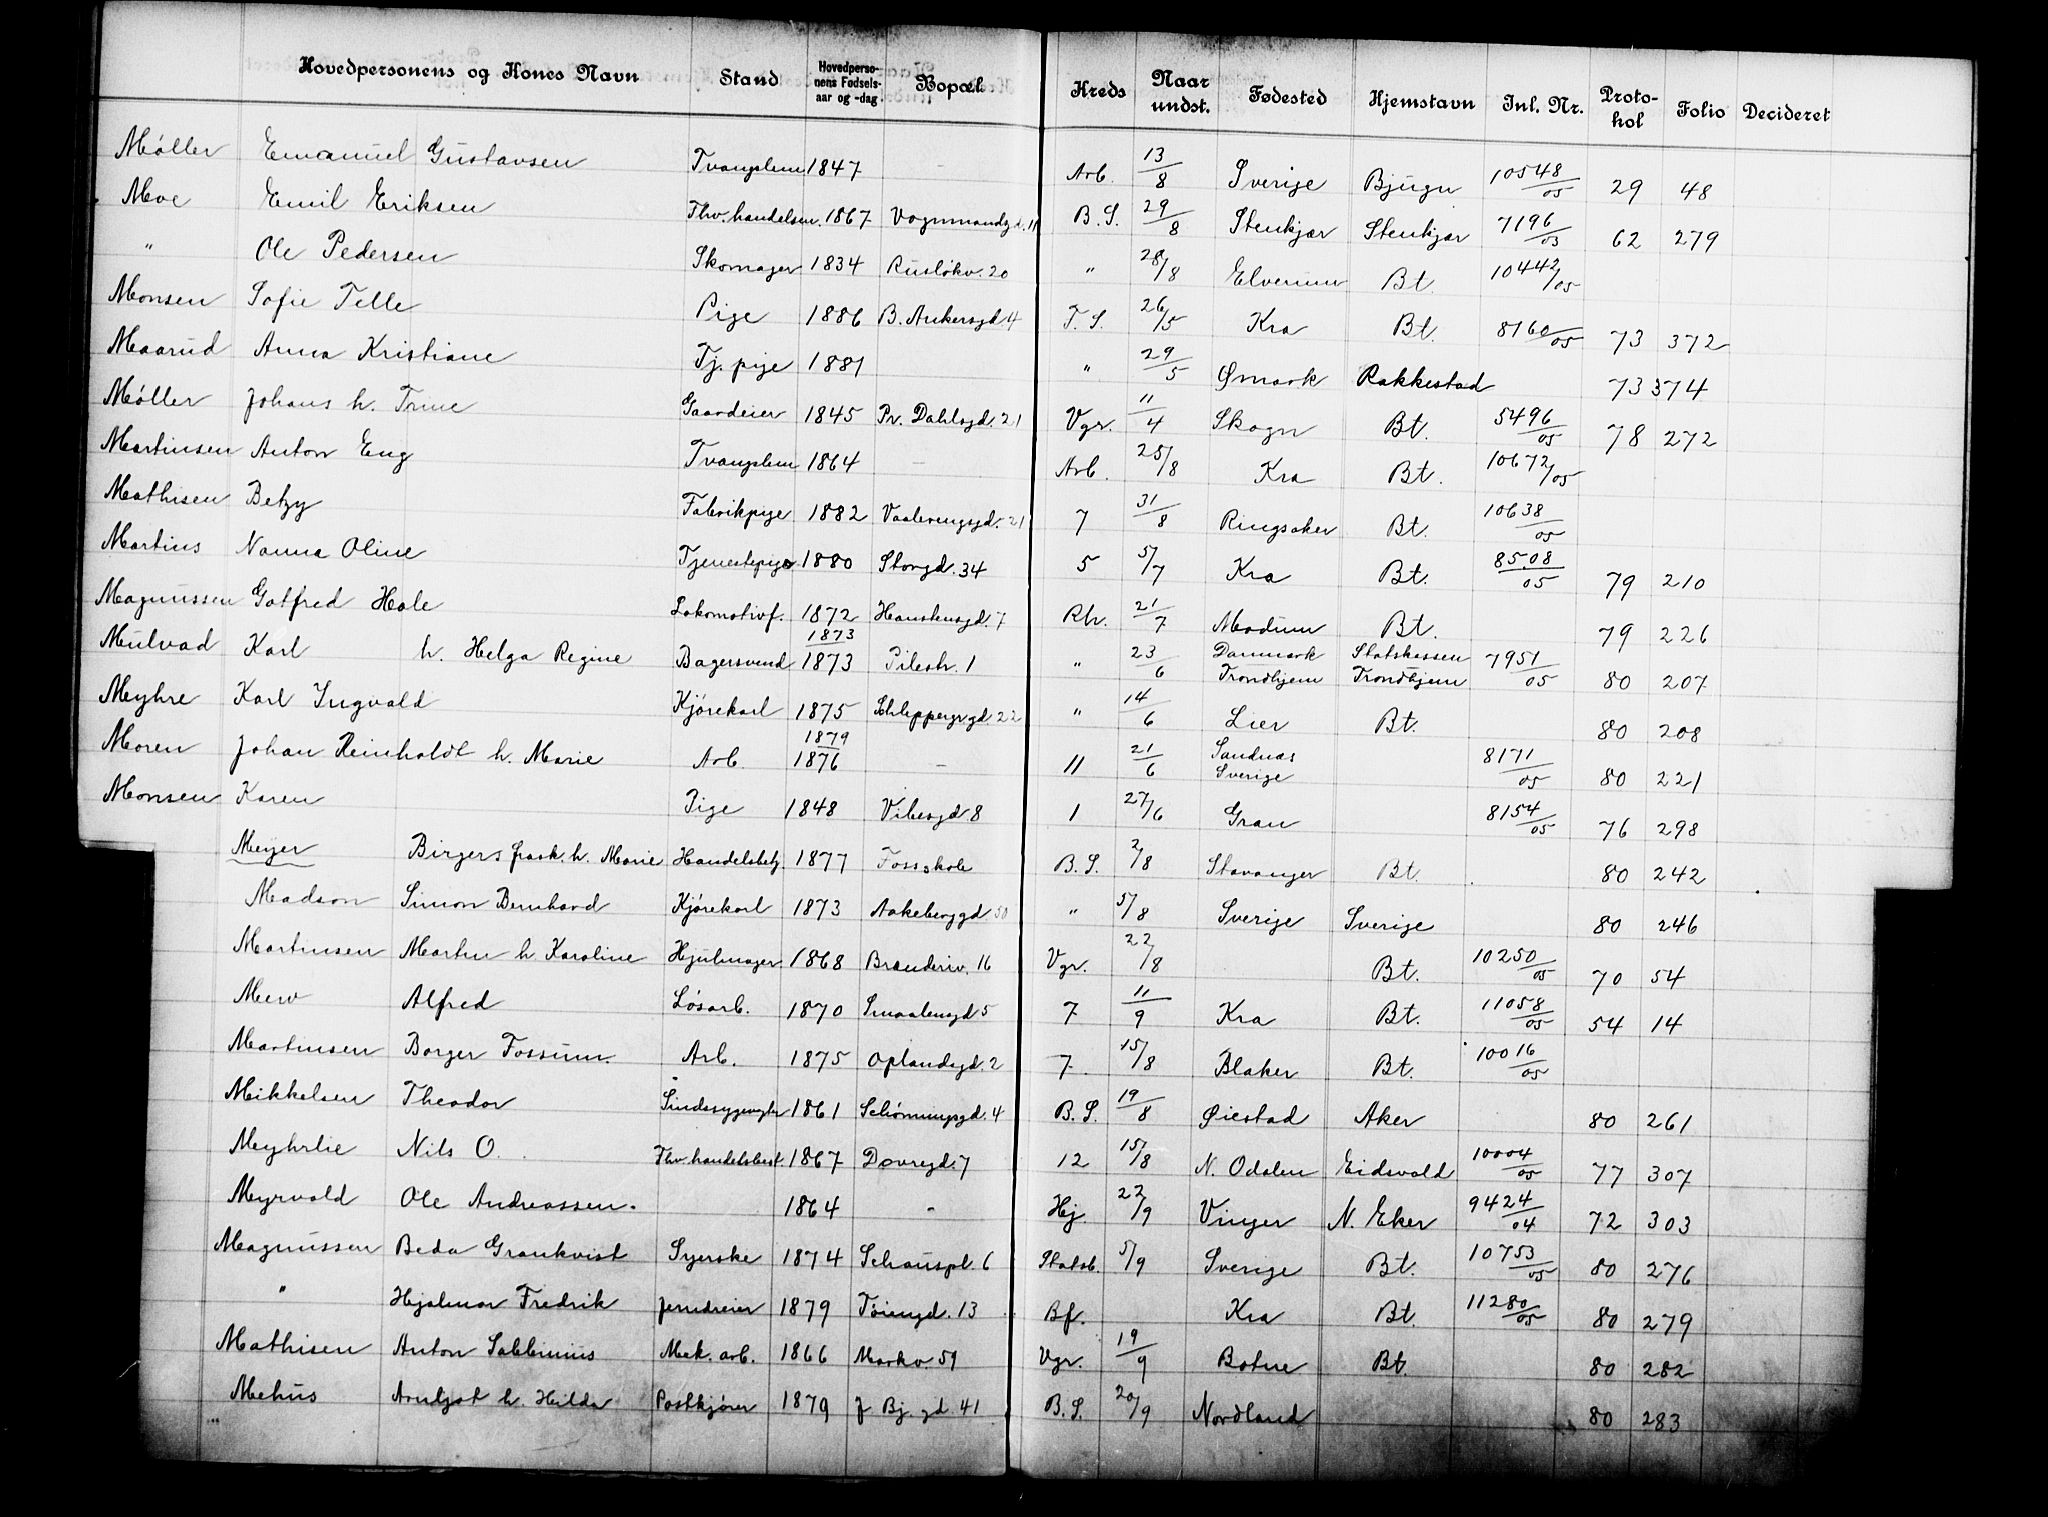 Hovedpersonens og Kones Navn Stand Hovedperso-nens Fødsels-aar og -dag Bopæl Kreds Naar undst. Fødested Hjemstavn Inl. Nr. Proto-kol Folio Decideret
Møller Emanuel Gustavsen Tvangslem 1847 - Arb. 13/8 Sverige Bjugn 10548/05 29 48
Moe Emil Eriksen Fhv. handelsm. 1867 Vognmandsgd. 11 B.S. 29/8 Stenkjær Stenkjær 7196/03 62 279
" Ole Pedersen Skomager 1834 Rusløkv. 20 " 28/8 Elverum Bt. 10442/05
Monsen Sofie Telle Pige 1886 B. Ankersgd 4 T.S. 26/5 Kra Bt. 8160/05 73 372
Maarud Anna Kristiane Tj. pige 1881 " 29/5 Ømark Rakkestad 73 374
Møller Johans h. Trine Gaardeier 1845 Pr. Dahlsgd. 21 Vgr. 11/4 Skogn Bt. 5496/05 78 272
Martinsen Anton Eng Tvangslem 1864 - Arb. 25/8 Kra Bt. 10672/05
Mathisen Betzy Fabrikpige 1882 Vaalerengsgd. 21 7 31/8 Ringsaker Bt. 10638/05
Martins Nanna Oline Tjenestepige 1880 Storgd. 34 5 5/7 Kra Bt. 8508/05 79 210
Magnussen Gotfred Hole Lokomotivf. 1872 Hauskensgd. 7 Rh. 21/7 Modum Bt. 79 226
Mulvad Karl h. Helga Regine Bagersvend 1873/1873 Pilestr. 1 " 23/6 Danmark Trondhjem Statskassen Trondhjem 7951/05 80 207
Meyhre Karl Ingvald Kjørekarl 1875 Schleppegrgd 22 " 14/6 Lier Bt. 80 208
Moren Johan Reinholdt h. Marie Arb. 1879/1876 - 11 21/6 Sandnæs Sverige 8171/05 80 221
Monsen Karen Pige 1848 Vibesgd 8 1 27/6 Gran 8154/05 76 298
Meyer Birger h. Marie Handelsbetj. 1877 Fosskole B.S. 2/8 Stavanger Bt. 80 242
Madson Simon Bernhard Kjørekarl 1873 Aakeberggd 50 " 5/8 Sverige Sverige 80 246
Martinsen Martin h Karoline Hjulmager 1868 Brænderiv. 16 Vgr. 22/8 Bt. 10250/05 70 54
Alfred Løsarb. 1870 Smaalensgd 5 7 11/9 Kra Bt. 11058/05 54 14
Martinsen Borger Fossum. Arb. 1875 Oplandsgd. 2 7 15/8 Blaker Bt. 10016/05
Mikkelsen Theodor Sindssygevogter 1861 Schønningsgd. 4 B.S. 19/8 Øiestad Aker 80 261
Meyhrlie Nils O. Fhv. handelsbest. 1867 Dovregd. 7 12 15/8 N. Odalen Eidsvold 10004/05 77 307
Myrvold Ole Andreassen. 1864 - Hj. 22/9 Vinger N. Eker 9424/04 72 303
Magnussen Beda Grankvist Syerske 1874 Schouspl. 6 Statsb. 5/9 Sverige Bt. 10753/05 80 276
" Hjalmar Fredrik Jerndreier 1879 Tøiengd. 13 Bf. Kra Bt. 11280/05 80 279
Mathisen Anton Sabbinius Mek. arb. 1866 Markv. 59 Vgr. 19/9 Botne Bt. 80 282
Mehus Arnljot h. Hilda Postkjører 1879 J. Bj. gd. 41 B.S. 20/9 Nordland 80 283